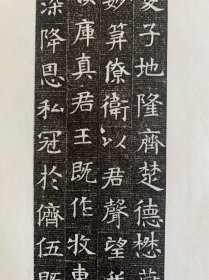 子地隆齊楚德懋
妙算僚衛以君聲望
庫真君王既作牧東
深降恩私冠於儕伍既